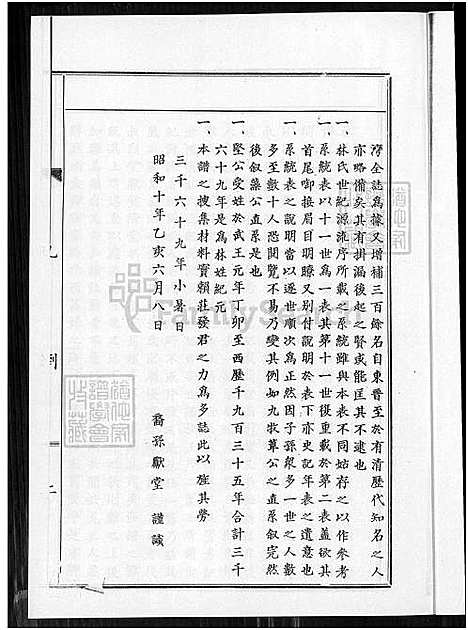 灣全誌爲據又增補三百餘名自東晉至於有清歷代知名之人
亦略備矣其有掛漏後起之賢或能匡其不逮也
一、林氏世紀源流序所載之系統雖與本表不同姑存之以作參考
一、系統表以十一世爲一表其第十一世復重載於第二表蓋欲其
首尾啣接眉目明瞭又別付說明於表下亦史記年表之遺意也
一、系統表之說明當以逐世順次爲正然因子孫衆多一世之人數
多至數十人恐閱覽不易乃變其例如九牧葦公之直系叙完然
後叙藻公直系是也
一、堅公受姓於武王元年丁卯至西歷千九百三十五年合計三千
六十九年是爲林姓紀元
一、本譜之搜集材料實賴莊發君之力爲多誌此以旌其勞
三千六十九年小暑日
昭和十年乙亥六月八日
裔孫獻堂 謹識
FamilySearch